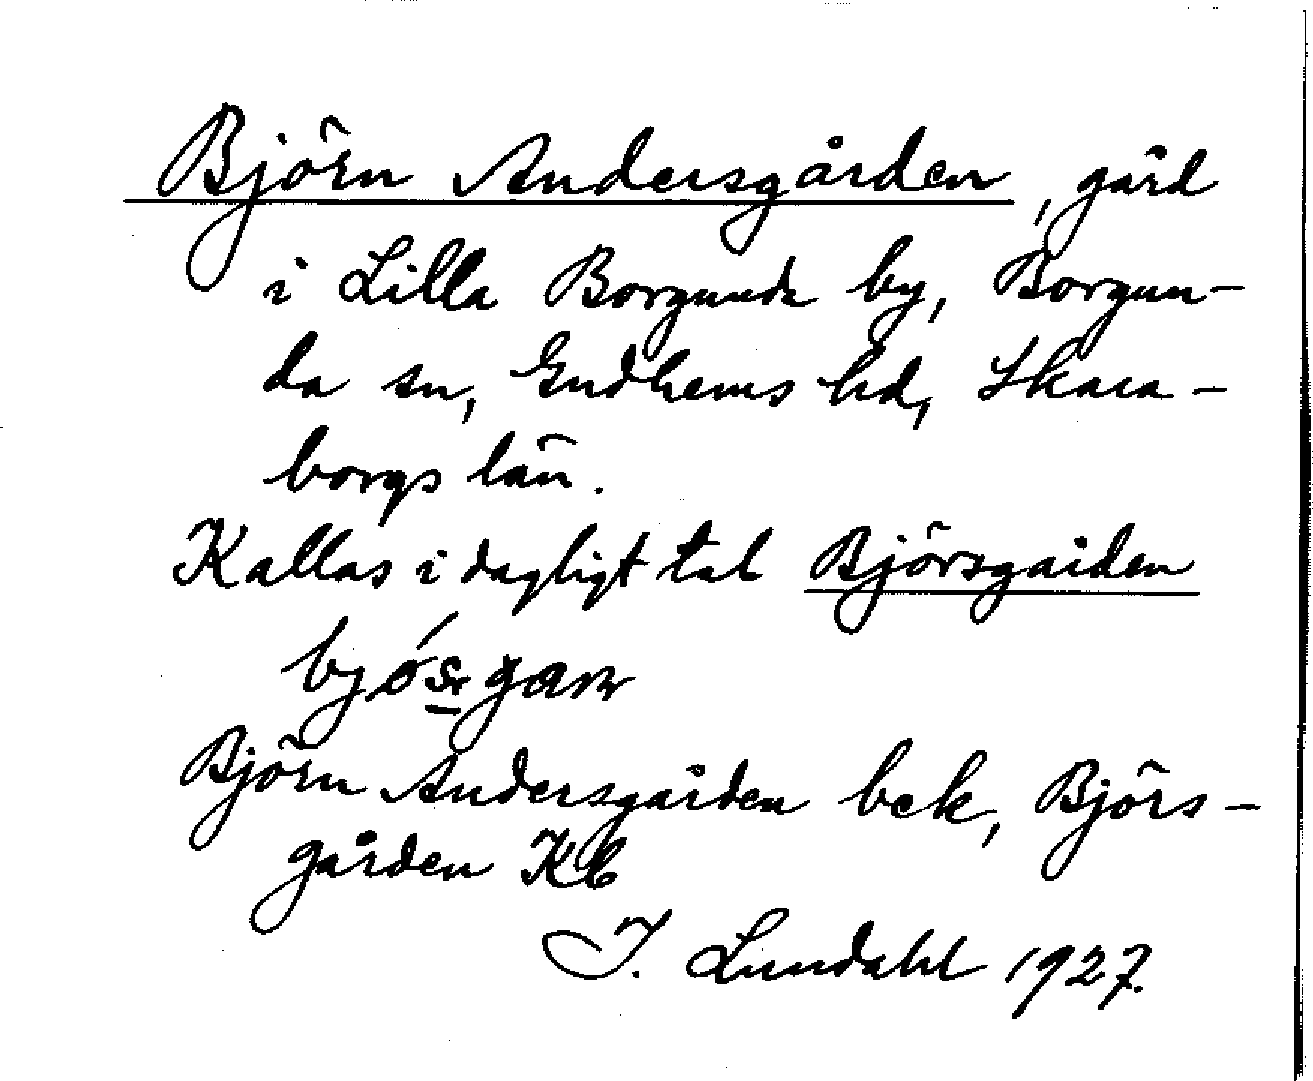 Björn Andersgården, gård
i Lilla Borgunda by, Borgun-
da sn, Gudhems hd, Skara-
borgs län.
Kallas i dagligt tal Björsgården
Björn Andersgården bek, Björs-
gården Kb
I. Lundahl 1927.